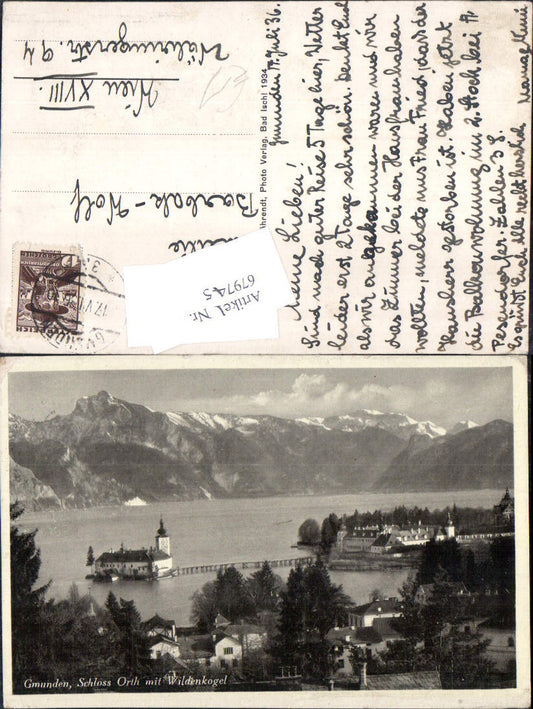 Gmunden 17. Juli 36.
Meine Lieben!
Sind nach guter Reise 5 Tage hier, Wetter
leider erst 2 Tage sehr schön. Denkt Euch
als wir angekommen waren und wir
das Zimmer bei der Hausfrau haben
wollten, meldete uns Frau Fried, dass der
Hausherr gestorben ist. Haben jetzt
die Balkonwohnung im 2. Stock bei
Pesendorfer Zahlen 3 S.
Es grüßt Euch alle recht herzlich
Barbak-Wolf
Wien XVIII.
94
Ahrendt, Photo Verlag, Bad Ischl 1934
Artikel Nr.
67974-5
Gmunden, Schloss Orth mit Wildenkogel